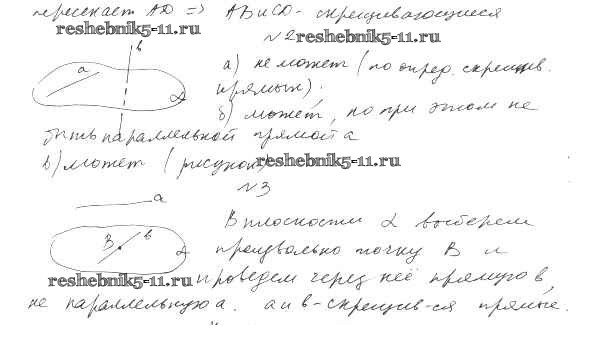 пересекает AD => AB и CD - скрещивающиеся
reshebnik5-11.ru
№2 reshebnik5-11.ru
b
a
α
а) не может (по опред. скрещив.
прямых).
б) может, но при этом не
быть параллельной прямой а
в) может (рисунок) reshebnik5-11.ru
№3
a
B b
α
В плоскости α выберем
произвольно точку В и
reshebnik5-11.ru проведем через неё прямую в,
не параллельную а. а и в - скрещив-ся прямые.